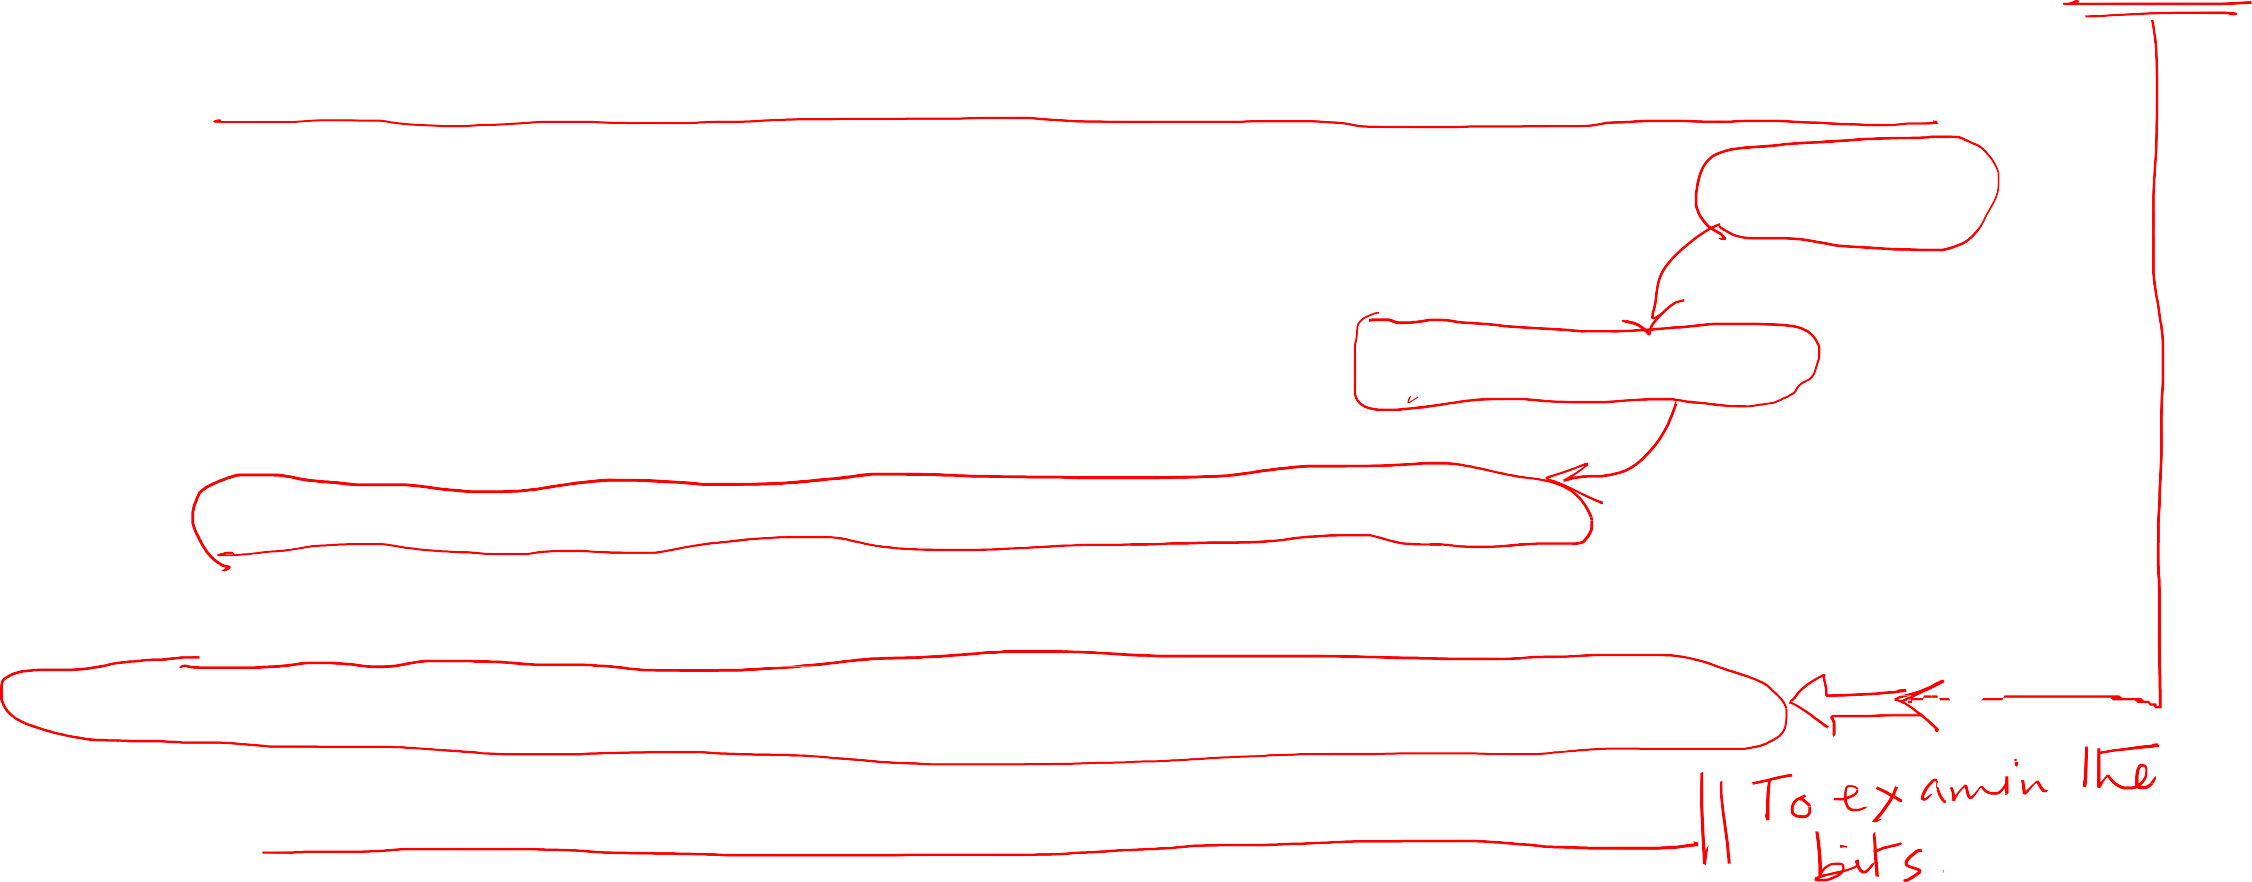 To examin the
bits.